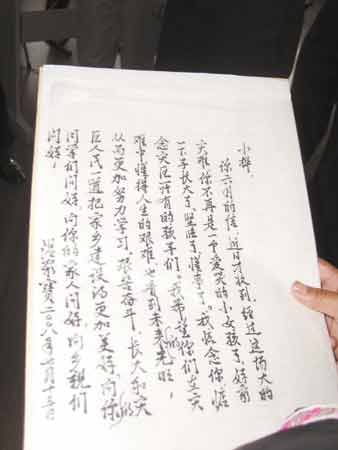 小桦:
你六月的信,近日才收到。经过这场大的
灾难,你不再是一个爱哭的小女孩了,好像
一下子长大了、坚强了、懂事了。我惦念你,惦
念灾区所有的孩子们。我希望你们在灾
难中懂得人生的艰难,也看到未来的光明,
从而更加努力学习,艰苦奋斗,长大和灾
区人民一道把家乡建设得更加美好。向你的
同学们问好,向你的家人问好,向乡亲们
问好!
温家宝 二〇〇八年七月十三日